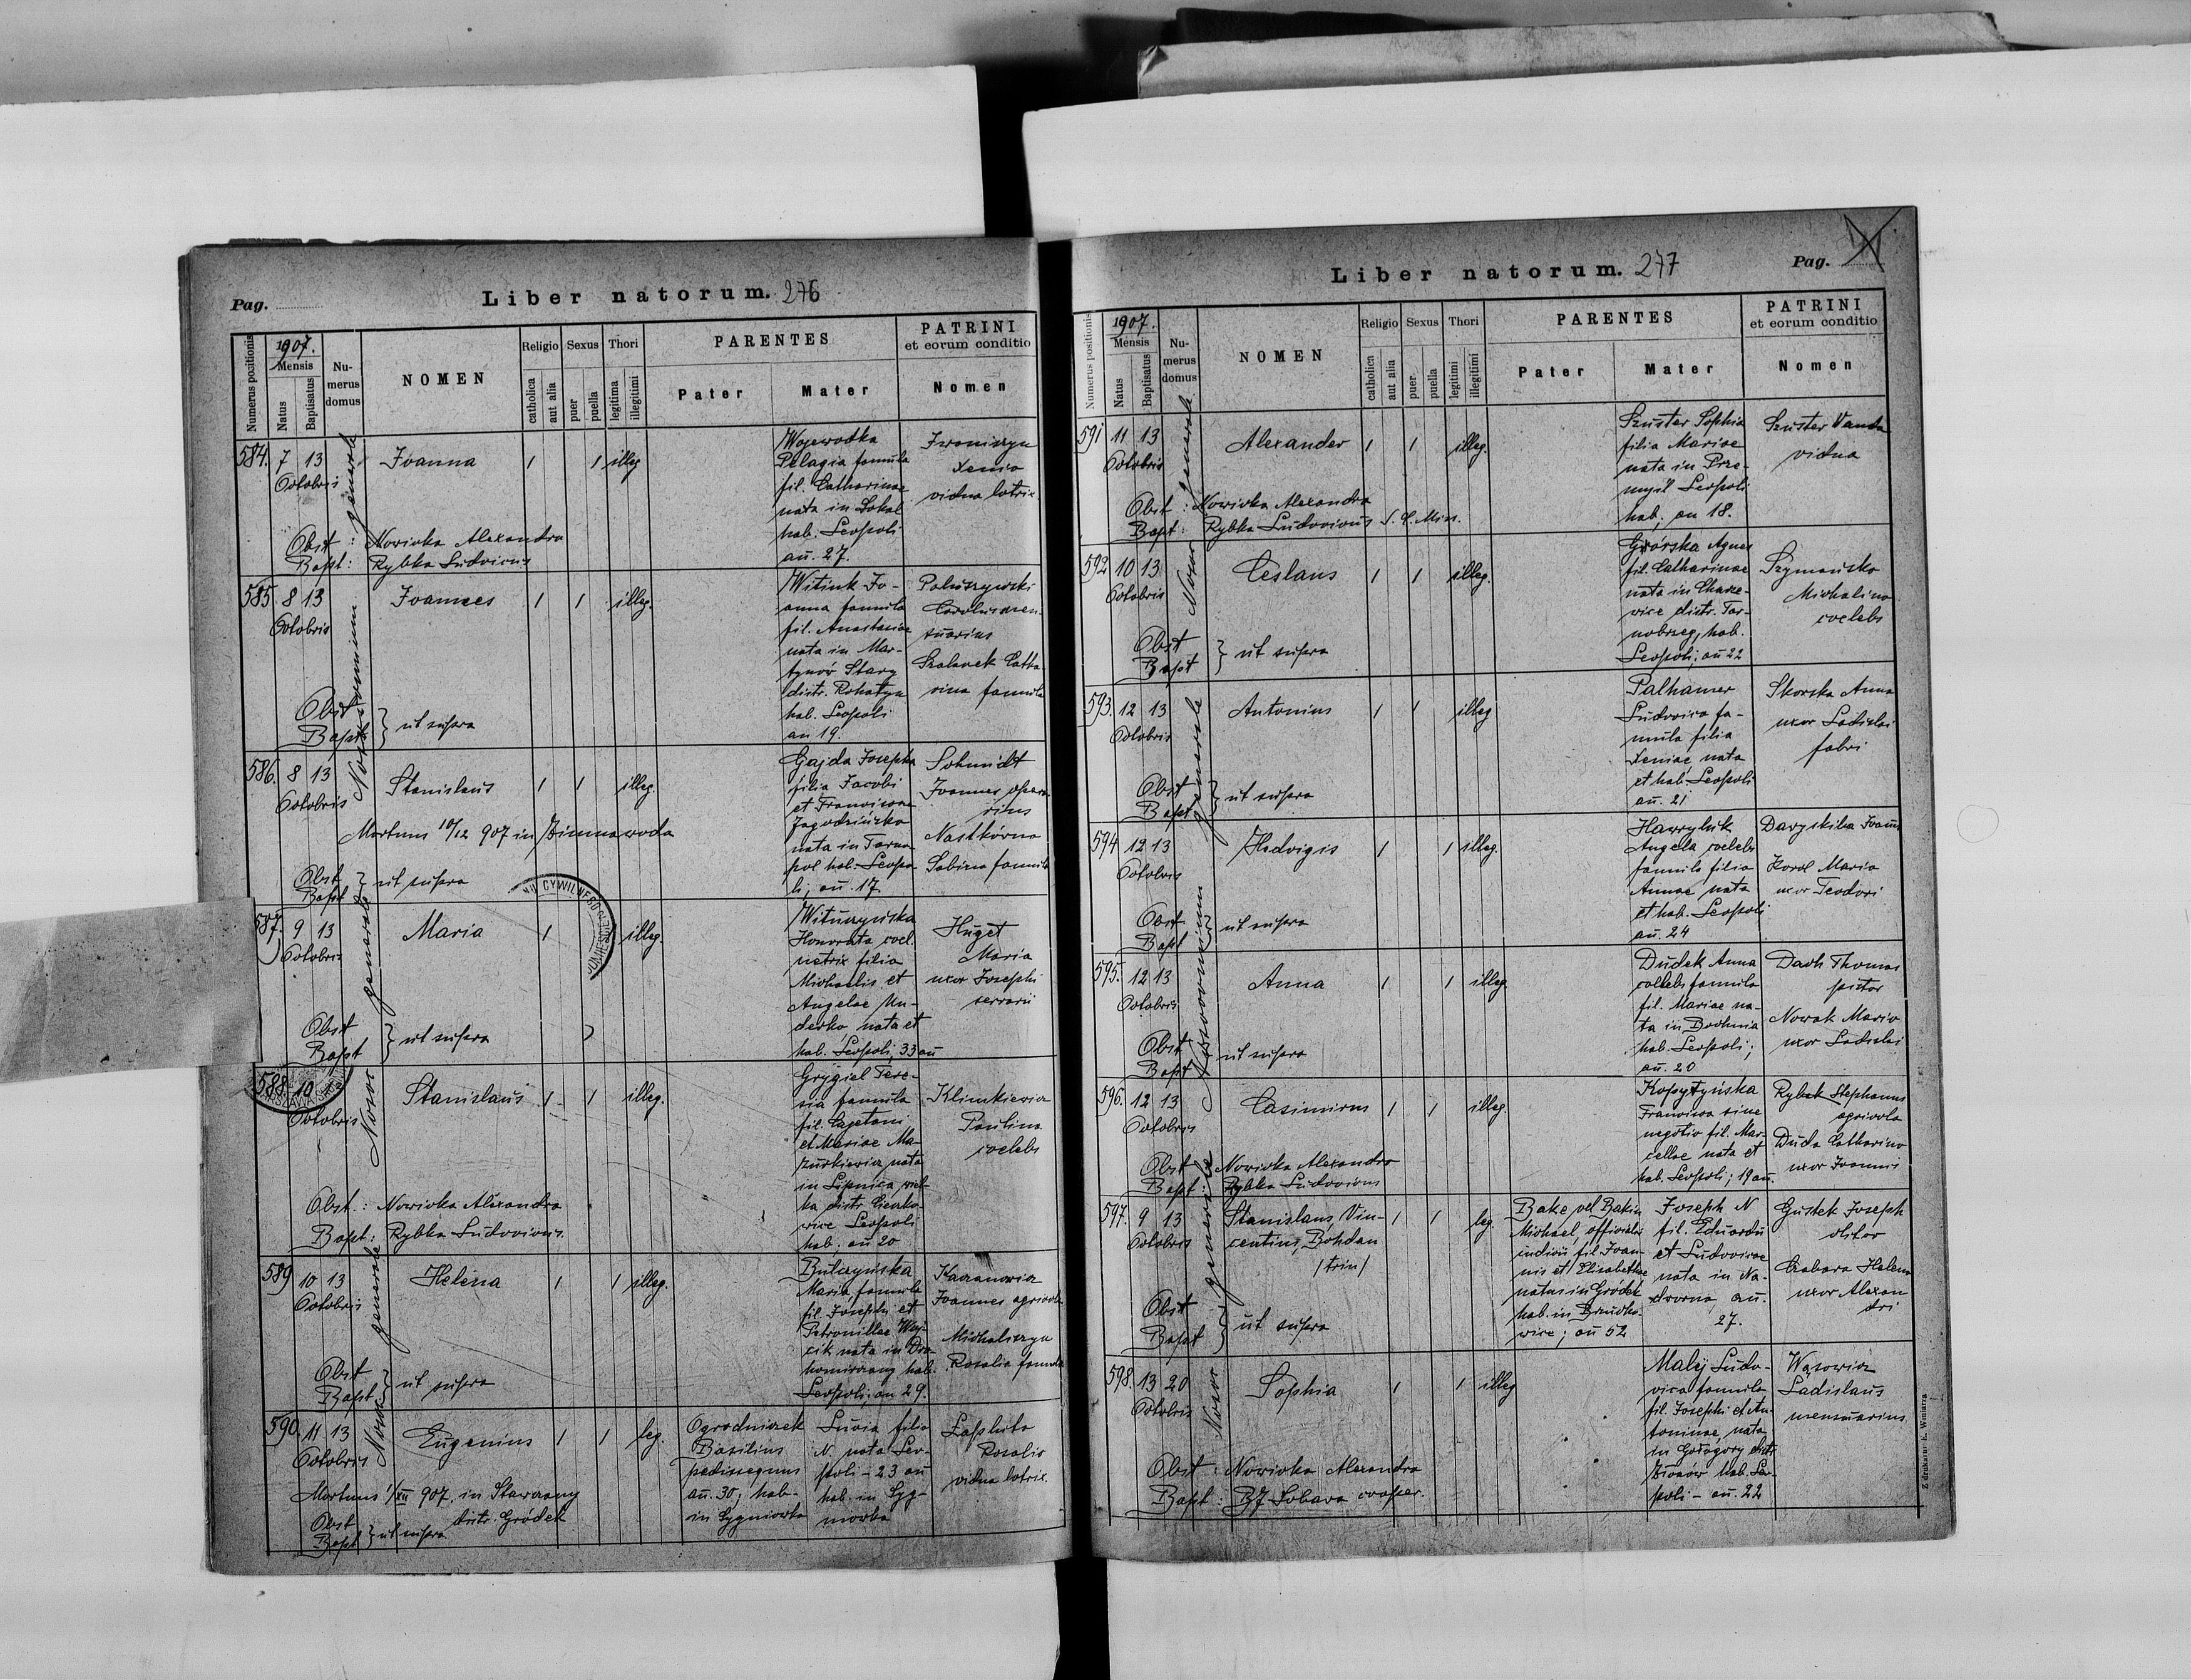 Pag.
Liber natorum. 276
Numerus positionis
1907.
Mensis
Natus
Baptisatus
Numerus domus
NOMEN
Religio
catholica
aut alia
Sexus
puer
puella
Thori
legitima
illegitimi
PARENTES
Pater
Mater
PATRINI
et eorum conditio
Nomen
Nosocomium generale
584. 7 13
Octobris
Joanna
1 1 illeg
Wojewodka
Pelagia famula
fil. Catharinae
nata in Sokal
hab. Leopoli
an. 27.
Xenia
vidua lotrix
Obst : Nowicka Alexandra
Bapt : Rybka Ludovicus
585. 8 13
Octobris
Joannes
1 1 illeg.
Witiuk Jo-
anna famula
fil. Anastasiae
nata in Mar-
tynów Stary
distr. Rohatyn
hab. Leopoli
an 19.
Carolus men-
suarius
Catha
rina famula
Obst
Bapt } ut supra
586. 8 13
Octobris
Stanislaus
1 1 illeg.
Gajda Josepha
filia Jacobi
et Franciscae
Jagodzińska
nata in Tarno-
pol hab. Leopo-
li; an. 17
Schmidt
Joannes opera-
rius
Sabina famula
Mortuus 10/12 907 in Zimnawoda
Obst
Bapt } ut supra
587. 9 13
Octobris
Maria
1 illeg.
Wituszyńska
Honorata coel.
filia
Michaelis et
Angelae Mu-
derko, nata et
hab. Leopoli, 33 an
Huget
Maria
uxor Josephi
serrarii
Obst
Bapt } ut supra
588. 10
Octobris
Stanislaus
1 1 illeg.
Grygiel Tere-
sia famula
fil. Cajetani
et Mariae Ma-
zurkiewicz nata
in Lipnica wiel-
ka distr.
Leopoli
hab; an 20
Klimkiewicz
Paulina
coelebs
Obst. : Nowicka Alexandra
Bapt : Rybka Ludovicus.
589 10 13
Octobris
Helena
1 1 illeg.
Bulczyńska
Maria, famula
fil. Josephi et
Petronillae Woj-
cik nata in
hab.
Leopoli; an 29.
Kaczanowicz
Joannes agricola
Michaliszyn
Rosalia famula
Obst
Bapt } ut supra
590. 11 13
Octobris
Eugenius
1 1 leg.
Ogrodniczek
Basilius
pedissequus
an. 30; hab.
in Sygniowka
filia
N nata Leo-
poli - 23 an
hab. in Syg-
niowka
Rosalia
vidua lotrix.
Mortuus 1/XII 907. in Stawczany
distr. Gródek
Obst
Bapt } ut supra
Liber natorum. 277
Pag.
Numerus positionis
1907.
Mensis
Natus
Baptisatus
Numerus domus
NOMEN
Religio
catholica
aut alia
Sexus
puer
puella
Thori
legitimi
illegitimi
PARENTES
Pater
Mater
PATRINI
et eorum conditio
Nomen
Nosocomium generale
591 11 13
Octobris
Alexander
1 1 illeg.
Szuster Sophia
filia Mariae
nata in Prze-
myśl Leopoli
hab; an 18.
Szuster Vanda
vidua
Obst : Nowicka Alexandra
Bapt : Rybka Ludovicus S. C. Miss.
592 10 13
Octobris
Ceslaus
1 1 illeg.
Górska Agnes
fil. Catharinae
nata in Charze-
wice distr. Tar-
nobrzeg, hab.
Leopoli; an 22
Szymańska
Michalina
coelebs
Obst
Bapt } ut supra
593. 12 13
Octobris
Antonius
1 1 illeg
Palhamer
Ludovica fa-
mula filia
Xeniae, nata
et hab. Leopoli
an. 21
Skorska Anna
uxor Ladislai
fabri
Obst
Bapt } ut supra
594 12 13
Octobris
Hedvigis
1 1 illeg.
Hawryluk
Angela, coelebs
famula filia
Annae nata
et hab. Leopoli
an. 24
Korol Maria
uxor Teodori
Obst
Bapt } ut supra
595. 12 13
Octobris
Anna
1 1 illeg.
Dudek Anna
coelebs famula
fil. Mariae na-
ta in Bochnia
hab. Leopoli;
an. 20
Dach Thomas
pictor
Nowak Maria
uxor Ladislai
Obst
Bapt } ut supra
596. 12 13
Octobris
Casimirus
1 1 illeg.
Kopytyńska
Francisca sine
negotio fil. Mar-
cellae nata et
hab. Leopoli; 19 an.
Rybak Stephanus
agricola
Duda Catharina
uxor Joannis
Obst : Nowicka Alexandra
Bapt : Rybka Ludovicus
597. 9 13
Octobris
Stanislaus, Vin-
centius, Bohdan
/trin/
1 1 leg.
Bake vel Bakin
Michael, officialis
fil Joan-
nis et Elisabethae
natus in Gródek
hab. in Brzucho-
wice; an 52
Joseph N
fil. Eduardi
et Ludovicae
nata in Na-
dworna, an.
27.
Gustek Joseph
olitor
Helena
uxor Alexan
dri
Obst
Bapt } ut supra
598. 13 20
Octobris
Sophia
1 1 illeg
Malej Ludo-
vica famula
fil. Josephi et An-
toninae, nata
in Gołogóry distr.
Złoczów hab. Leo-
poli - an. 22
Wąsowicz
Ladislaus
mensuarius
Obst : Nowicka Alexandra
Bapt : cooper.
Z drukarni E. Winiarza